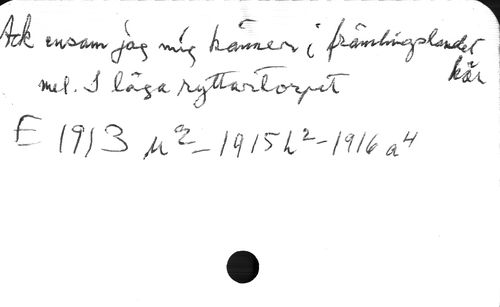 Ack ensam jag mig känner i främlingslandet här
mel. I låga ryttartorpet
E 1913 u2 - 1915 h2 - 1916 a4